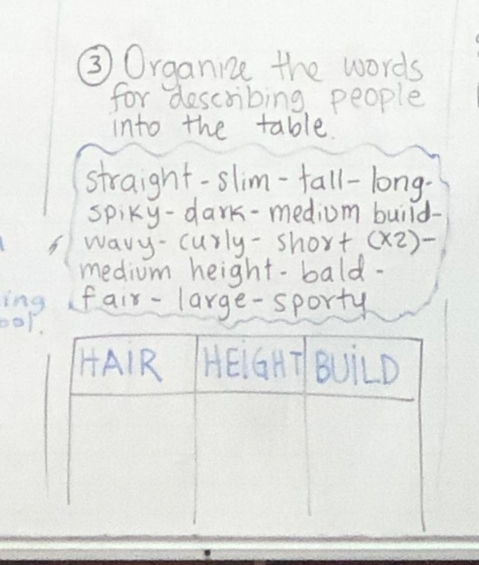 ③ Organize the words
for describing people
into the table.
straight - slim - tall - long -
spiky - dark - medium build -
wavy - curly - short (x2) -
medium height - bald -
fair - large - sporty
ing
HAIR HEIGHT BUILD